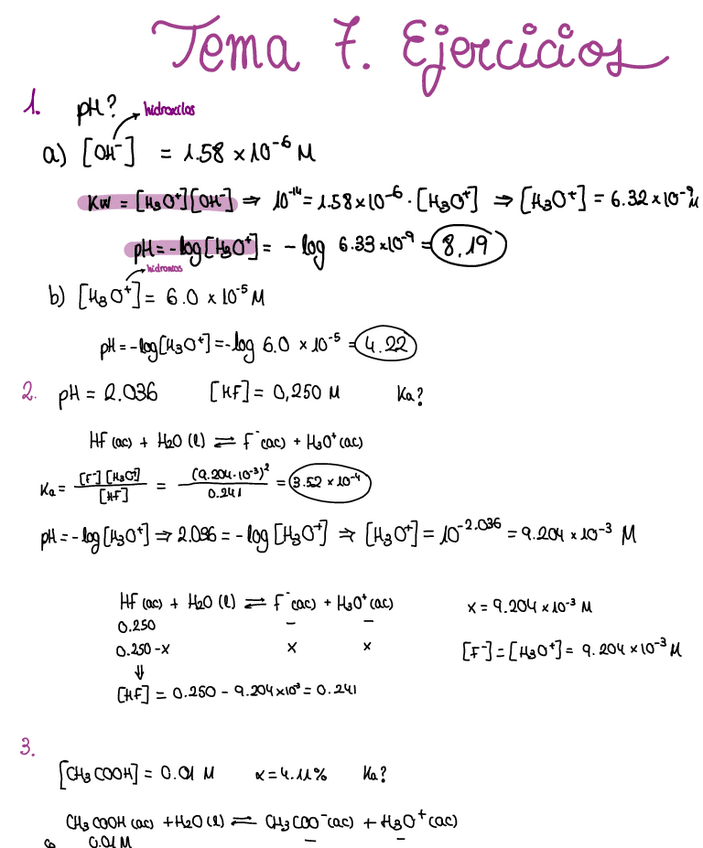 Tema 7. Ejercicios
1. pH?
hidroxilos
a) [OH⁻] = 1.58 × 10⁻⁶ M
Kw = [H₃O⁺][OH⁻] ⇒ 10⁻¹⁴ = 1.58 × 10⁻⁶ · [H₃O⁺] ⇒ [H₃O⁺] = 6.32 × 10⁻⁹ M
pH = -log[H₃O⁺] = -log 6.33 × 10⁻⁹ = 8.19
hidronios
b) [H₃O⁺] = 6.0 × 10⁻⁵ M
pH = -log[H₃O⁺] = -log 6.0 × 10⁻⁵ = 4.22
2. pH = 2.036 [HF] = 0,250 M Ka?
HF (ac) + H₂O (l) ⇌ F⁻ (ac) + H₃O⁺ (ac)
Ka = [F⁻][H₃O⁺] / [HF] = (9.204 · 10⁻³)² / 0.241 = 3.52 × 10⁻⁴
pH = -log[H₃O⁺] ⇒ 2.036 = -log[H₃O⁺] ⇒ [H₃O⁺] = 10⁻²·⁰³⁶ = 9.204 × 10⁻³ M
HF (ac) + H₂O (l) ⇌ F⁻ (ac) + H₃O⁺ (ac) x = 9.204 × 10⁻³ M
0.250 – –
0.250 - x x x [F⁻] = [H₃O⁺] = 9.204 × 10⁻³ M
⇓
[HF] = 0.250 - 9.204 × 10³ = 0.241
3.
[CH₃COOH] = 0.01 M α = 4.11% Ka?
CH₃COOH (ac) + H₂O (l) ⇌ CH₃COO⁻ (ac) + H₃O⁺ (ac)
0.01 M – –